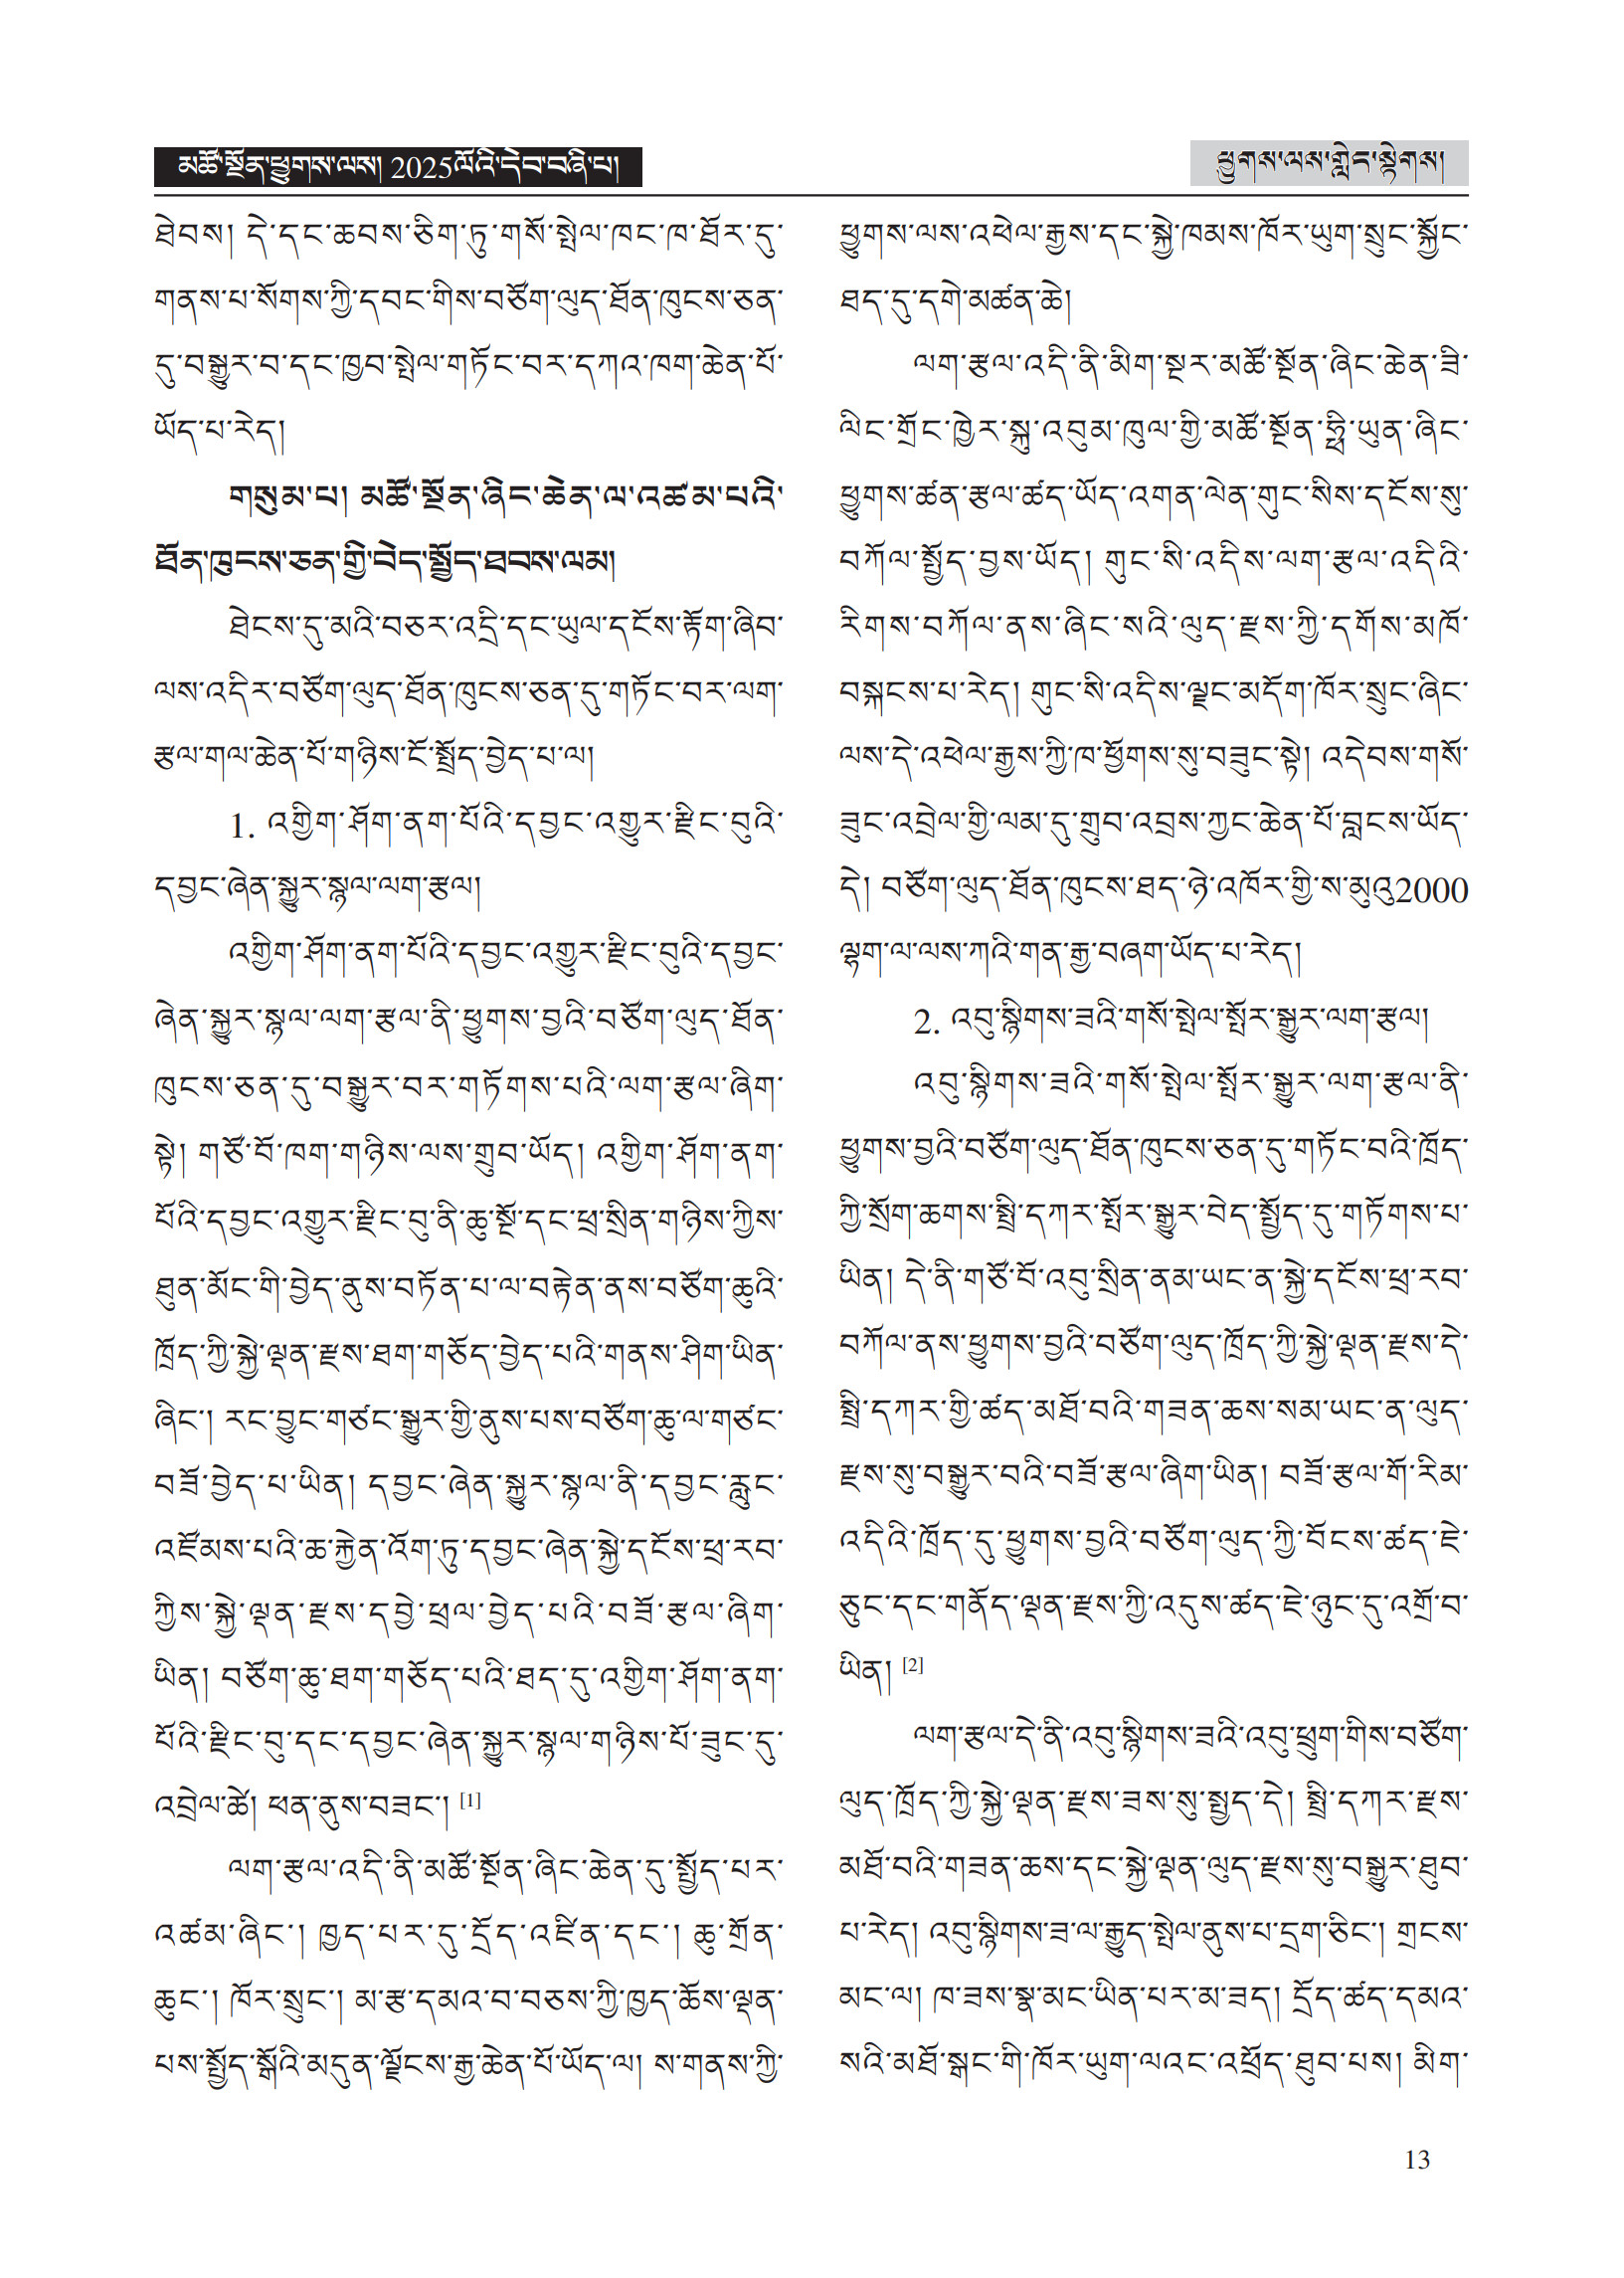 མཚོ་སྔོན་ཕྱུགས་ལས། 2025ལོའི་དེབ་བཞི་པ།
ཕྱུགས་ལས་གླེང་སྟེགས།
ཐེབས། དེ་དང་ཆབས་ཅིག་ཏུ་གསོ་སྤེལ་ཁང་ཁ་ཐོར་དུ་
གནས་པ་སོགས་ཀྱི་དབང་གིས་བཙོག་ལུད་ཐོན་ཁུངས་ཅན་
དུ་བསྒྱུར་བ་དང་ཁྱབ་སྤེལ་གཏོང་བར་དཀའ་ཁག་ཆེན་པོ་
ཡོད་པ་རེད།
གསུམ་པ། མཚོ་སྔོན་ཞིང་ཆེན་ལ་འཚམ་པའི་
ཐོན་ཁུངས་ཅན་གྱི་བེད་སྤྱོད་ཐབས་ལམ།
ཐེངས་དུ་མའི་བཅར་འདྲི་དང་ཡུལ་དངོས་རྟོག་ཞིབ་
ལས་འདིར་བཙོག་ལུད་ཐོན་ཁུངས་ཅན་དུ་གཏོང་བར་ལག་
རྩལ་གལ་ཆེན་པོ་གཉིས་ངོ་སྤྲོད་བྱེད་པ་ལ།
1. འགྱིག་ཤོག་ནག་པོའི་དབྱང་འགྱུར་རྫིང་བུའི་
དབྱང་ཞེན་སྐྱུར་སྙལ་ལག་རྩལ།
འགྱིག་ཤོག་ནག་པོའི་དབྱང་འགྱུར་རྫིང་བུའི་དབྱང་
ཞེན་སྐྱུར་སྙལ་ལག་རྩལ་ནི་ཕྱུགས་བྱའི་བཙོག་ལུད་ཐོན་
ཁུངས་ཅན་དུ་བསྒྱུར་བར་གཏོགས་པའི་ལག་རྩལ་ཞིག་
སྟེ། གཙོ་བོ་ཁག་གཉིས་ལས་གྲུབ་ཡོད། འགྱིག་ཤོག་ནག་
པོའི་དབྱང་འགྱུར་རྫིང་བུ་ནི་ཆུ་སྔོ་དང་ཕྲ་སྲིན་གཉིས་ཀྱིས་
ཐུན་མོང་གི་བྱེད་ནུས་བཏོན་པ་ལ་བརྟེན་ནས་བཙོག་ཆུའི་
ཁྲོད་ཀྱི་སྐྱེ་ལྡན་རྫས་ཐག་གཅོད་བྱེད་པའི་གནས་ཤིག་ཡིན་
ཞིང་། རང་བྱུང་གཙང་སྒྱུར་གྱི་ནུས་པས་བཙོག་ཆུ་ལ་གཙང་
བཟོ་བྱེད་པ་ཡིན། དབྱང་ཞེན་སྐྱུར་སྙལ་ནི་དབྱང་རླུང་
འཛོམས་པའི་ཆ་རྐྱེན་འོག་ཏུ་དབྱང་ཞེན་སྐྱེ་དངོས་ཕྲ་རབ་
ཀྱིས་སྐྱེ་ལྡན་རྫས་དབྱེ་ཕྲལ་བྱེད་པའི་བཟོ་རྩལ་ཞིག་
ཡིན། བཙོག་ཆུ་ཐག་གཅོད་པའི་ཐད་དུ་འགྱིག་ཤོག་ནག་
པོའི་རྫིང་བུ་དང་དབྱང་ཞེན་སྐྱུར་སྙལ་གཉིས་པོ་ཟུང་དུ་
འབྲེལ་ཚེ། ཕན་ནུས་བཟང་། [1]
ལག་རྩལ་འདི་ནི་མཚོ་སྔོན་ཞིང་ཆེན་དུ་སྤྱོད་པར་
འཚམ་ཞིང་། ཁྱད་པར་དུ་དྲོད་འཛིན་དང་། ཆུ་གྲོན་
ཆུང་། ཁོར་སྲུང་། མ་རྩ་དམའ་བ་བཅས་ཀྱི་ཁྱད་ཆོས་ལྡན་
པས་སྤྱོད་སྒོའི་མདུན་ལྗོངས་རྒྱ་ཆེན་པོ་ཡོད་ལ། ས་གནས་ཀྱི་
ཕྱུགས་ལས་འཕེལ་རྒྱས་དང་སྐྱེ་ཁམས་ཁོར་ཡུག་སྲུང་སྐྱོང་
ཐད་དུ་དགེ་མཚན་ཆེ།
ལག་རྩལ་འདི་ནི་མིག་སྔར་མཚོ་སྔོན་ཞིང་ཆེན་ཟི་
ལིང་གྲོང་ཁྱེར་སྐུ་འབུམ་ཁུལ་གྱི་མཚོ་སྔོན་ཧྥི་ཡུན་ཞིང་
ཕྱུགས་ཚན་རྩལ་ཚད་ཡོད་འགན་ལེན་གུང་སིས་དངོས་སུ་
བཀོལ་སྤྱོད་བྱས་ཡོད། གུང་སི་འདིས་ལག་རྩལ་འདིའི་
རིགས་བཀོལ་ནས་ཞིང་སའི་ལུད་རྫས་ཀྱི་དགོས་མཁོ་
བསྐངས་པ་རེད། གུང་སི་འདིས་ལྗང་མདོག་ཁོར་སྲུང་ཞིང་
ལས་དེ་འཕེལ་རྒྱས་ཀྱི་ཁ་ཕྱོགས་སུ་བཟུང་སྟེ། འདེབས་གསོ་
ཟུང་འབྲེལ་གྱི་ལམ་དུ་གྲུབ་འབྲས་ཀྱང་ཆེན་པོ་བླངས་ཡོད་
དེ། བཙོག་ལུད་ཐོན་ཁུངས་ཐད་ཉེ་འཁོར་གྱི་ས་མུའུ2000
ལྷག་ལ་ལས་ཀའི་གན་རྒྱ་བཞག་ཡོད་པ་རེད།
2. འབུ་སྙིགས་ཟའི་གསོ་སྤེལ་སྤོར་སྒྱུར་ལག་རྩལ།
འབུ་སྙིགས་ཟའི་གསོ་སྤེལ་སྤོར་སྒྱུར་ལག་རྩལ་ནི་
ཕྱུགས་བྱའི་བཙོག་ལུད་ཐོན་ཁུངས་ཅན་དུ་གཏོང་བའི་ཁྲོད་
ཀྱི་སྲོག་ཆགས་སྤྲི་དཀར་སྤོར་སྒྱུར་བེད་སྤྱོད་དུ་གཏོགས་པ་
ཡིན། དེ་ནི་གཙོ་བོ་འབུ་སྲིན་ནམ་ཡང་ན་སྐྱེ་དངོས་ཕྲ་རབ་
བཀོལ་ནས་ཕྱུགས་བྱའི་བཙོག་ལུད་ཁྲོད་ཀྱི་སྐྱེ་ལྡན་རྫས་དེ་
སྤྲི་དཀར་གྱི་ཚད་མཐོ་བའི་གཟན་ཆས་སམ་ཡང་ན་ལུད་
རྫས་སུ་བསྒྱུར་བའི་བཟོ་རྩལ་ཞིག་ཡིན། བཟོ་རྩལ་གོ་རིམ་
འདིའི་ཁྲོད་དུ་ཕྱུགས་བྱའི་བཙོག་ལུད་ཀྱི་བོངས་ཚད་ཇེ་
ཅུང་དང་གནོད་ལྡན་རྫས་ཀྱི་འདུས་ཚད་ཇེ་ཉུང་དུ་འགྲོ་བ་
ཡིན། [2]
ལག་རྩལ་དེ་ནི་འབུ་སྙིགས་ཟའི་འབུ་ཕྲུག་གིས་བཙོག་
ལུད་ཁྲོད་ཀྱི་སྐྱེ་ལྡན་རྫས་ཟས་སུ་སྤྱད་དེ། སྤྲི་དཀར་རྫས་
མཐོ་བའི་གཟན་ཆས་དང་སྐྱེ་ལྡན་ལུད་རྫས་སུ་བསྒྱུར་ཐུབ་
པ་རེད། འབུ་སྙིགས་ཟ་ལ་རྒྱུད་སྤེལ་ནུས་པ་དྲག་ཅིང་། གྲངས་
མང་ལ། ཁ་ཟས་སྣ་མང་ཡིན་པར་མ་ཟད། དྲོད་ཚད་དམའ་
སའི་མཐོ་སྒང་གི་ཁོར་ཡུག་ལའང་འཕྲོད་ཐུབ་པས། མིག་
13